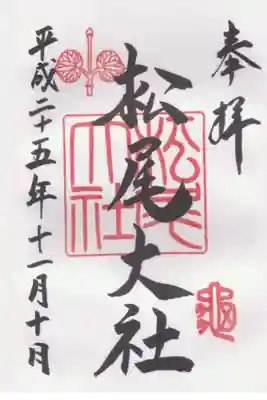 奉拝
松尾大社
松尾大社
龜
平成二十五年十一月十日